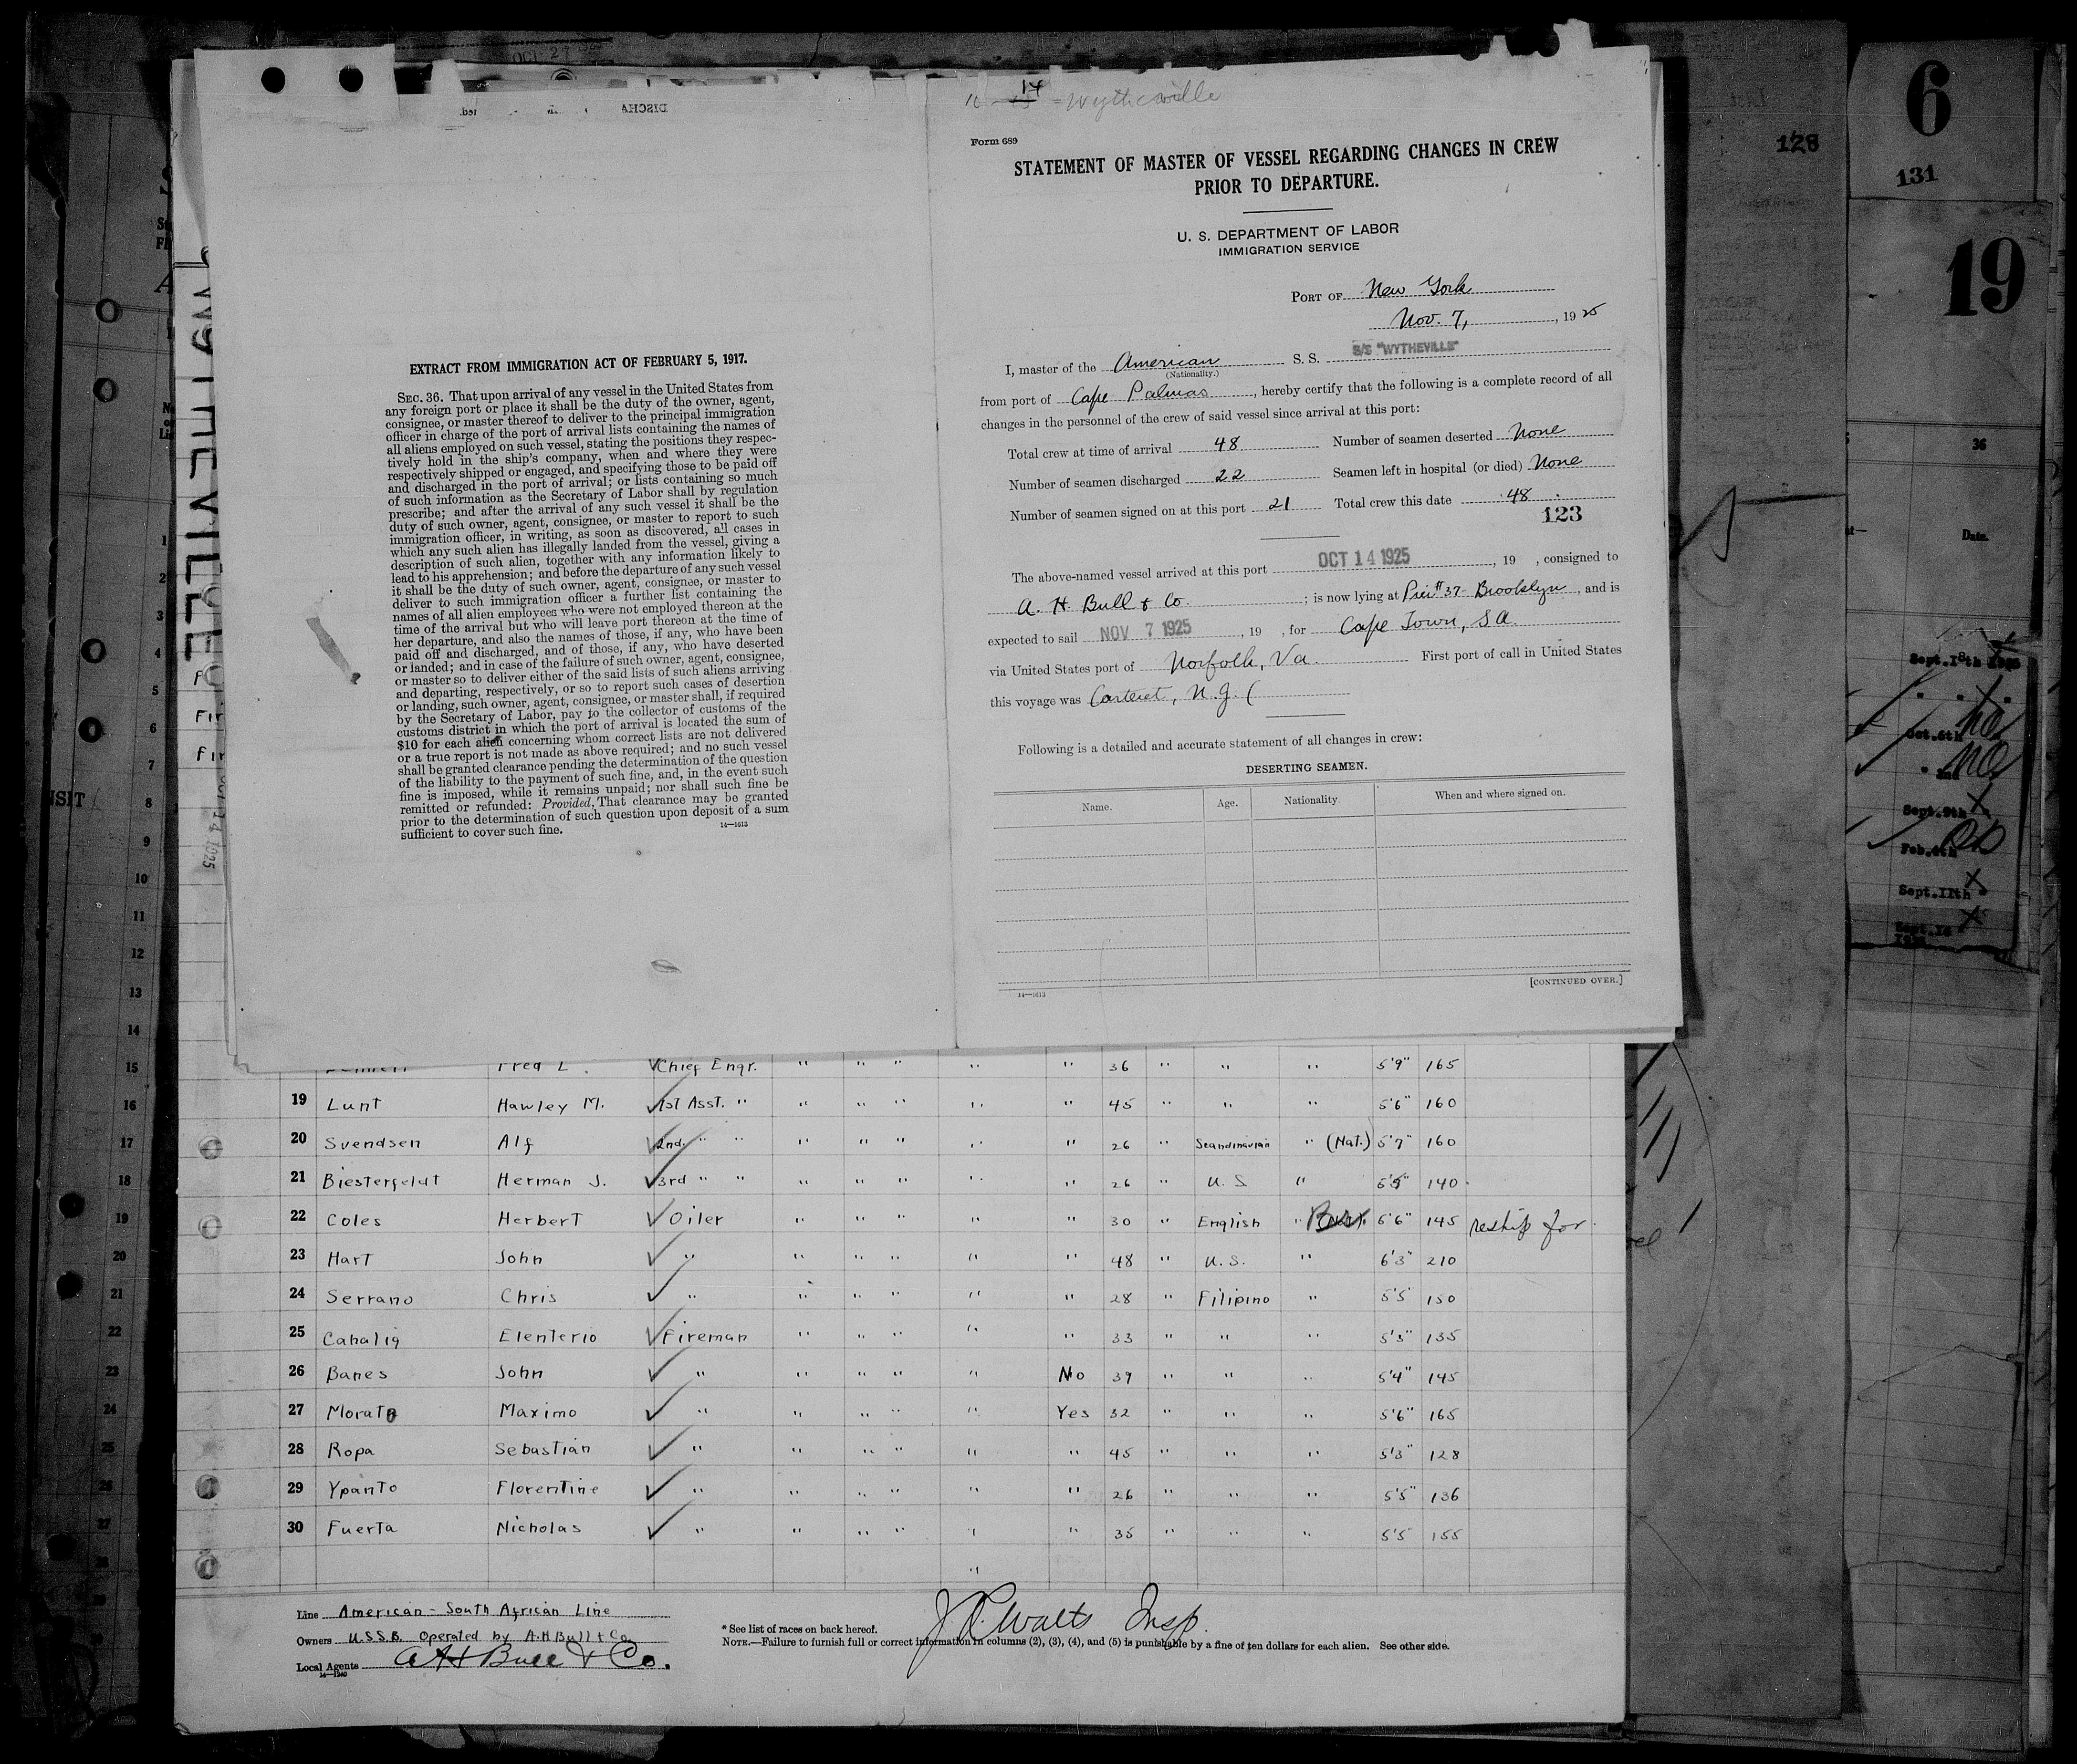 14
Wytheville
Form 689
STATEMENT OF MASTER OF VESSEL REGARDING CHANGES IN CREW
PRIOR TO DEPARTURE.
U. S. DEPARTMENT OF LABOR
IMMIGRATION SERVICE
PORT OF New York
Nov. 7, , 1925
I, master of the American S. S. S/S "WYTHEVILLE"
(Nationality.)
from port of Cape Palmas , hereby certify that the following is a complete record of all
changes in the personnel of the crew of said vessel since arrival at this port:
Total crew at time of arrival 48 Number of seamen deserted None
Number of seamen discharged 22 Seamen left in hospital (or died) None
Number of seamen signed on at this port 21 Total crew this date 48
123
The above-named vessel arrived at this port OCT 14 1925 , 19 , consigned to
A. H. Bull & Co. ; is now lying at Pier #37 Brooklyn , and is
expected to sail NOV 7 1925 , 19 , for Cape Town, SA.
via United States port of Norfolk, Va. First port of call in United States
this voyage was Carteret, N.J. (
Following is a detailed and accurate statement of all changes in crew:
DESERTING SEAMEN.
Name. Age. Nationality. When and where signed on.
14—1613
[CONTINUED OVER.]
EXTRACT FROM IMMIGRATION ACT OF FEBRUARY 5, 1917.
SEC. 36. That upon arrival of any vessel in the United States from
any foreign port or place it shall be the duty of the owner, agent,
consignee, or master thereof to deliver to the principal immigration
officer in charge of the port of arrival lists containing the names of
all aliens employed on such vessel, stating the positions they respec-
tively hold in the ship's company, when and where they were
respectively shipped or engaged, and specifying those to be paid off
and discharged in the port of arrival; or lists containing so much
of such information as the Secretary of Labor shall by regulation
prescribe; and after the arrival of any such vessel it shall be the
duty of such owner, agent, consignee, or master to report to such
immigration officer, in writing, as soon as discovered, all cases in
which any such alien has illegally landed from the vessel, giving a
description of such alien, together with any information likely to
lead to his apprehension; and before the departure of any such vessel
it shall be the duty of such owner, agent, consignee, or master to
deliver to such immigration officer a further list containing the
names of all alien employees who were not employed thereon at the
time of the arrival but who will leave port thereon at the time of
her departure, and also the names of those, if any, who have been
paid off and discharged, and of those, if any, who have deserted
or landed; and in case of the failure of such owner, agent, consignee,
or master so to deliver either of the said lists of such aliens arriving
and departing, respectively, or so to report such cases of desertion
or landing, such owner, agent, consignee, or master shall, if required
by the Secretary of Labor, pay to the collector of customs of the
customs district in which the port of arrival is located the sum of
$10 for each alien concerning whom correct lists are not delivered
or a true report is not made as above required; and no such vessel
shall be granted clearance pending the determination of the question
of the liability to the payment of such fine, and, in the event such
fine is imposed, while it remains unpaid; nor shall such fine be
remitted or refunded: Provided, That clearance may be granted
prior to the determination of such question upon deposit of a sum
sufficient to cover such fine.
14—1613
Fred L. Chief Engr. " " " " " 36 " " " 5'9" 165
19 Lunt Hawley M. 1st Asst. " " " " " " 45 " " " 5'6" 160
20 Svendsen Alf 2nd " " " " " " " 26 " Scandinavian " (Nat.) 5'7" 160
21 Biesterfeldt Herman J. 3rd " " " " " " " 26 " U. S " 5'5" 140
22 Coles Herbert Oiler " " " " " 30 " English " Brit. 5'6" 145 reship for
23 Hart John " " " " " " 48 " U. S. " 6'3" 210
24 Serrano Chris " " " " " " 28 " Filipino " 5'5 150
25 Cahalig Elenterio Fireman " " " " " 33 " " " 5'3" 135
26 Banes John " " " " " No 39 " " " 5'4" 145
27 Morato Maximo " " " " " Yes 32 " " " 5'6" 165
28 Ropa Sebastian " " " " " " 45 " " " 5'3" 128
29 Ypanto Florentine " " " " " " 26 " " " 5'5" 136
30 Fuerta Nicholas " " " " " " 35 " " " 5'5 155
Line American - South African Line
Owners U.S.S.B. Operated by A.H Bull & Co.
Local Agents A H Bull & Co.
* See list of races on back hereof.
NOTE.—Failure to furnish full or correct information in columns (2), (3), (4), and (5) is punishable by a fine of ten dollars for each alien. See other side.
Watts Insp.
WYTHEVILLE
6
131
19
128
36
Date.
Sept.18th
Oct.6th
Sept.9th
Feb.4th
Sept.11th
Sept.14